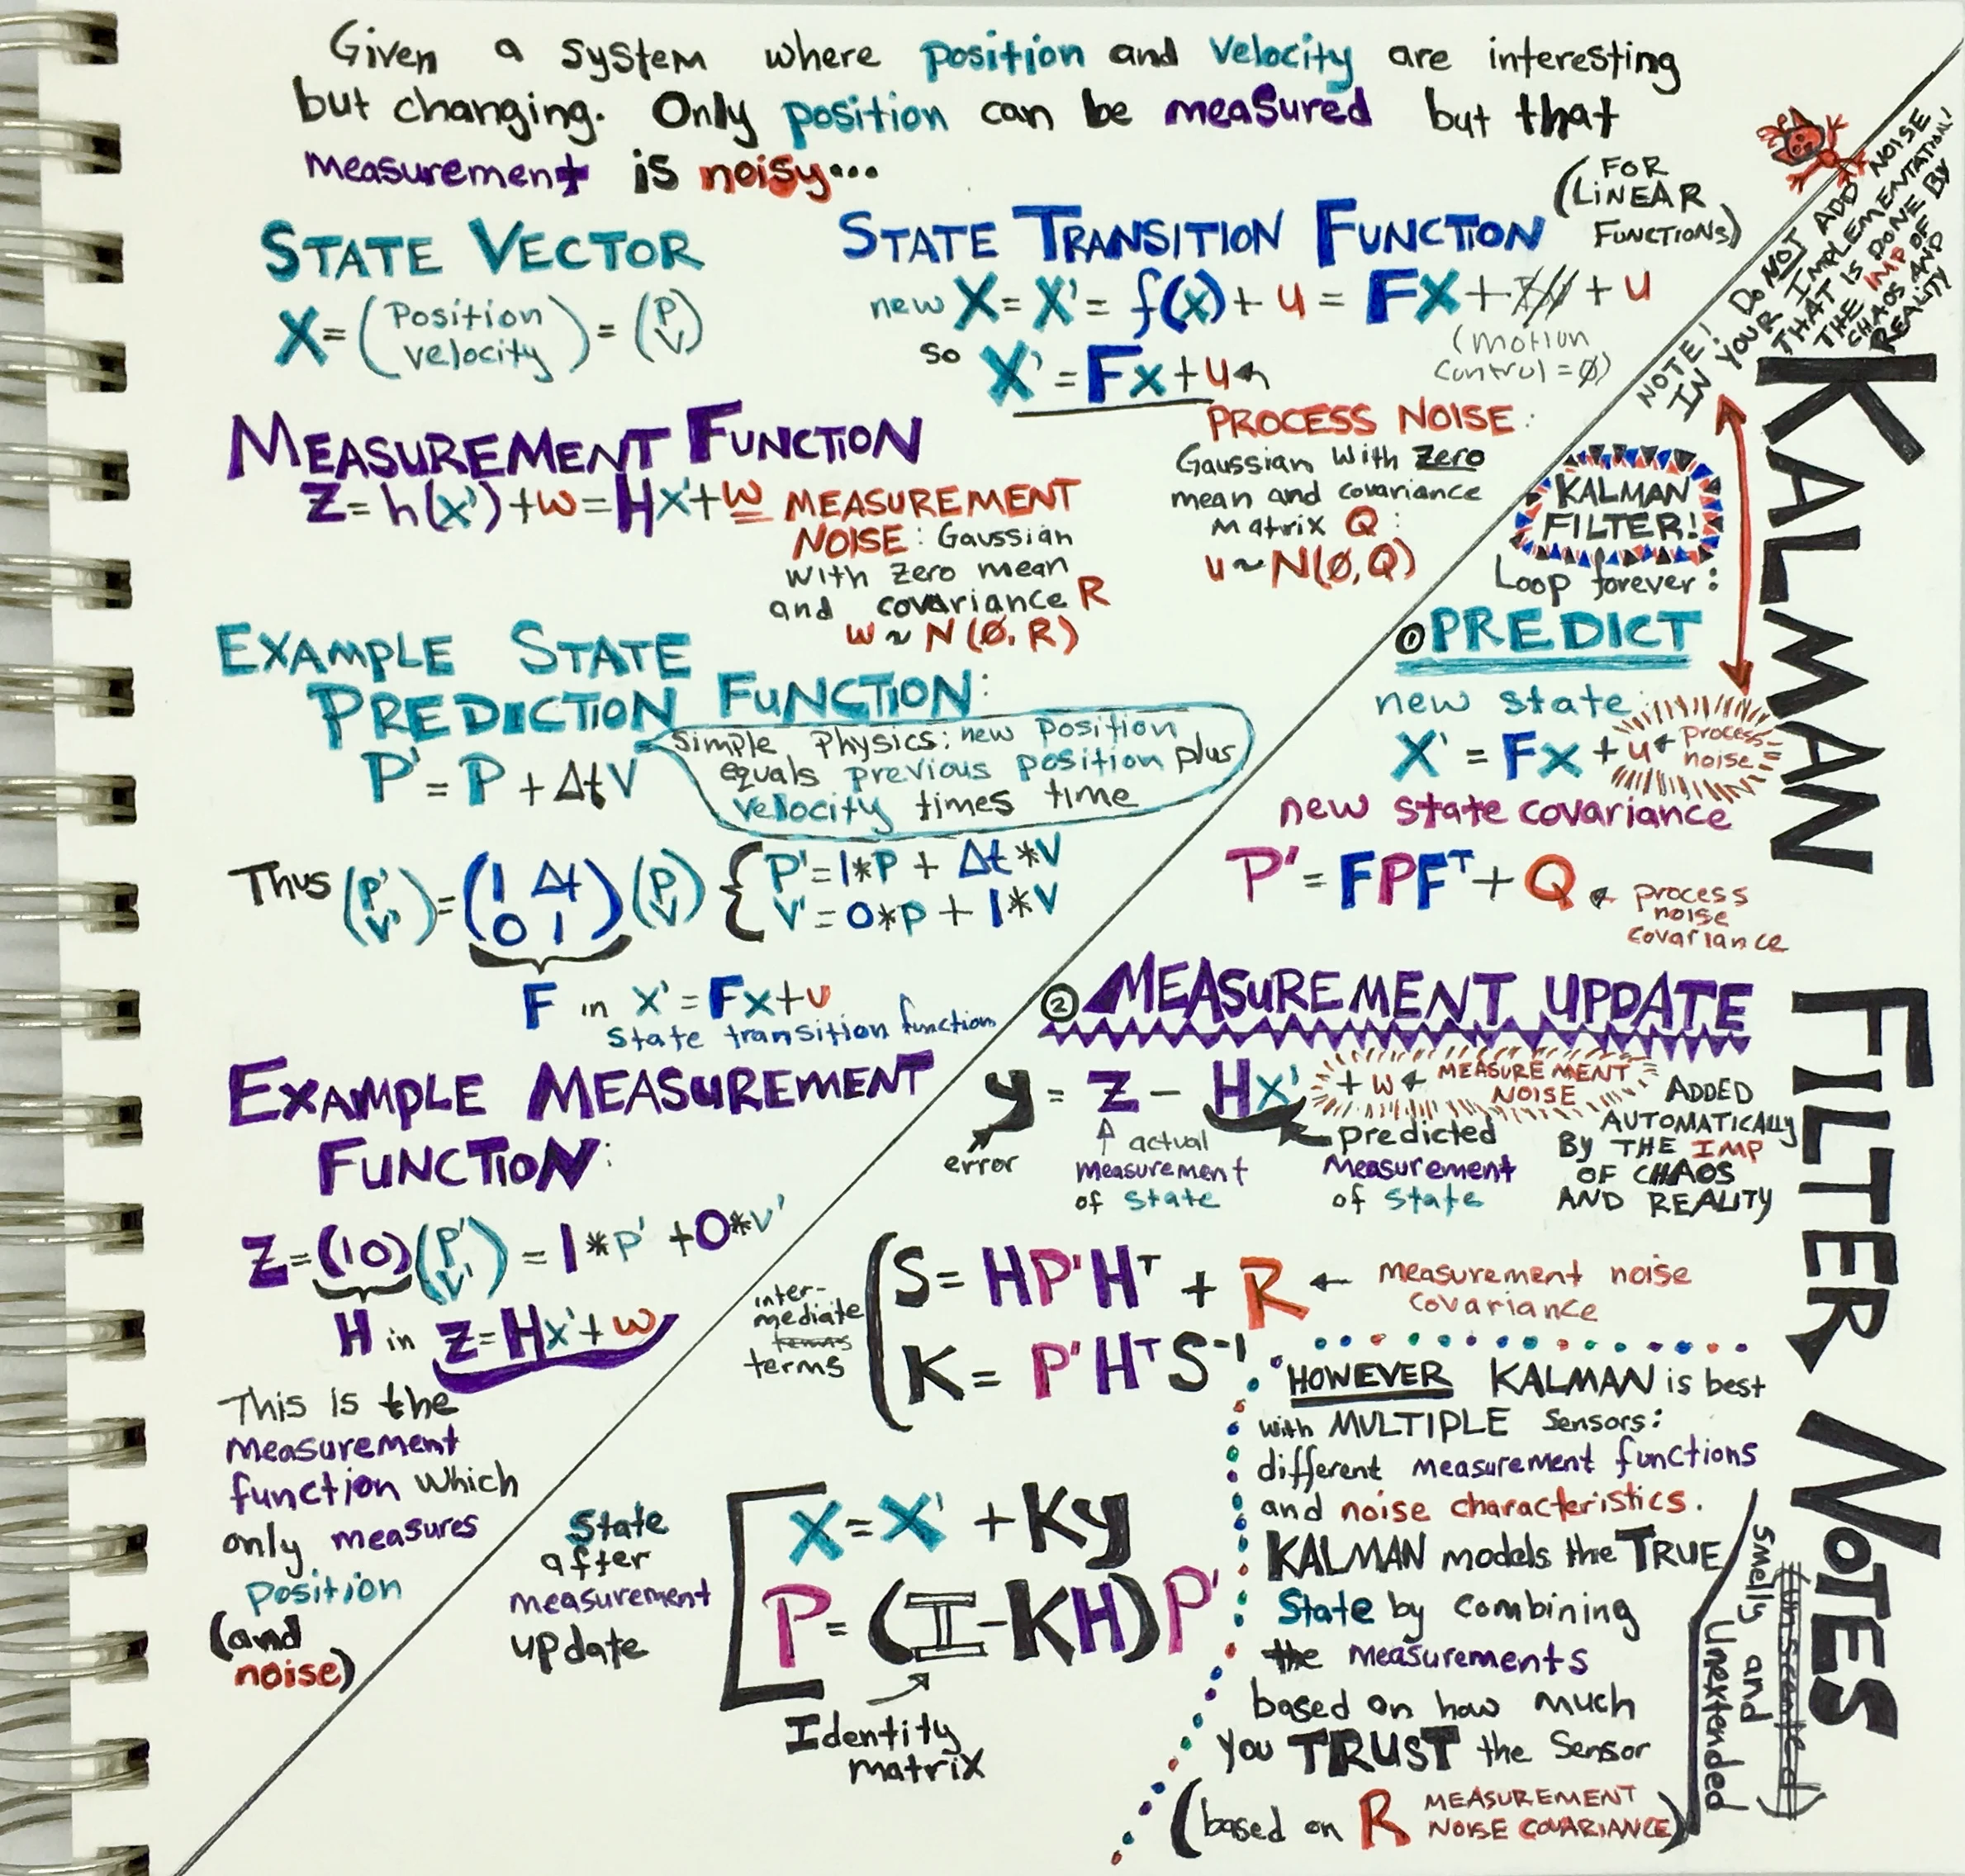 Given a system where position and velocity are interesting
but changing. Only position can be measured but that
measurement is noisy...
STATE VECTOR
X = (Position velocity) = (P V)
STATE TRANSITION FUNCTION (FOR LINEAR FUNCTIONS)
new X = X' = f(x) + u = FX + + u
(motion
control = ∅)
so X' = Fx + u
PROCESS NOISE:
Gaussian with zero
mean and covariance
matrix Q:
u ~ N(∅, Q)
MEASUREMENT FUNCTION
Z = h(x') + w = Hx' + w
MEASUREMENT
NOISE: Gaussian
with zero mean
and covariance R
w ~ N(∅, R)
EXAMPLE STATE
PREDICTION FUNCTION:
P' = P + ΔtV
Simple Physics: new position
equals previous position plus
velocity times time
Thus (P' V') = (1 Δt 0 1) (P V) {
P' = 1*P + Δt*V
V' = 0*P + 1*V
F in X' = Fx + u
State transition function
EXAMPLE MEASUREMENT
FUNCTION:
Z = (1 0) (P' V') = 1*P' + 0*V'
H in Z = Hx' + w
This is the
measurement
function which
only measures
position
(and
noise)
KALMAN FILTER NOTES
smelly and
unscented
Unextended
NOTE! DO NOT ADD NOISE
IN YOUR IMPLEMENTATION!
THAT IS DONE BY
THE IMP OF
CHAOS AND
REALITY
KALMAN
FILTER!
Loop forever:
① PREDICT
new state:
X' = Fx + u ← process
noise
new state covariance
P' = FPFᵀ + Q ← process
noise
covariance
② MEASUREMENT UPDATE
y = Z - Hx' + w ← MEASUREMENT
NOISE
ADDED
AUTOMATICALLY
BY THE IMP
OF CHAOS
AND REALITY
error
actual
measurement
of state
predicted
measurement
of state
inter-
mediate
terms
terms
S = HP'Hᵀ + R ← measurement noise
covariance
K = P'HᵀS⁻¹
State
after
measurement
update
X = X' + Ky
P = (I - KH)P'
Identity
matrix
HOWEVER KALMAN is best
with MULTIPLE sensors:
different measurement functions
and noise characteristics.
KALMAN models the TRUE
State by combining
the measurements
based on how much
you TRUST the sensor
(based on R MEASUREMENT
NOISE COVARIANCE)